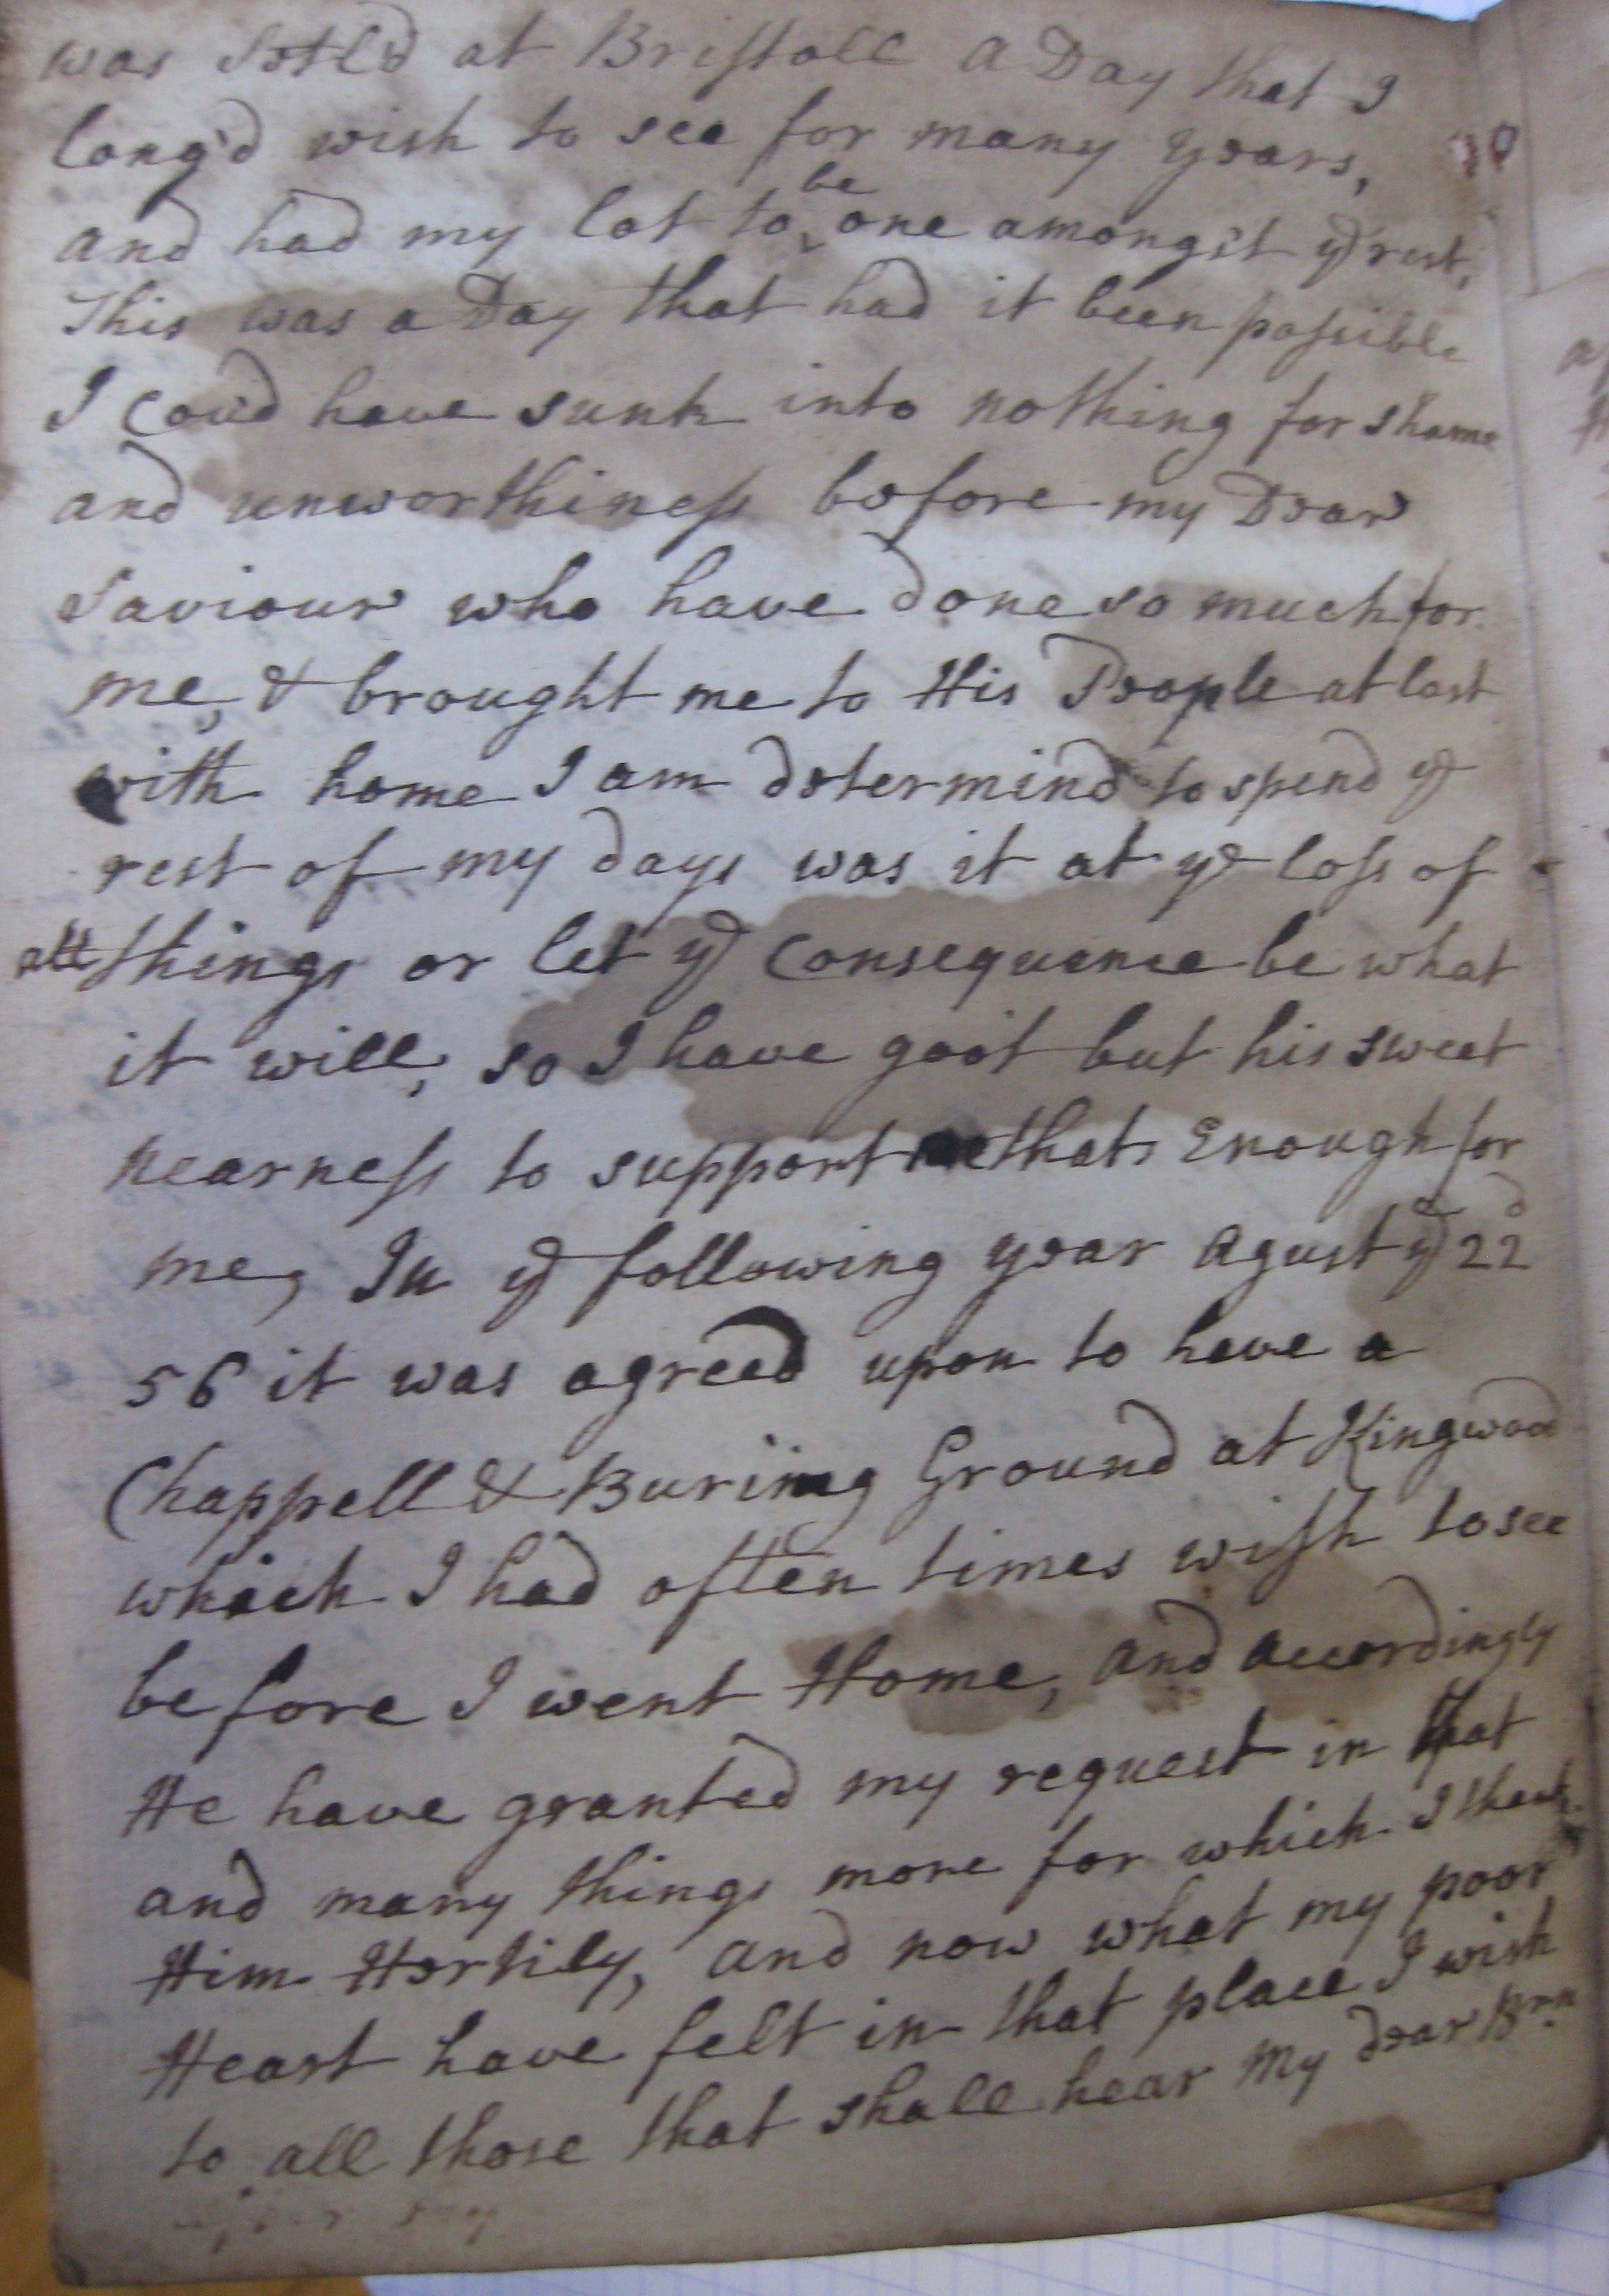 was Setl'd at Bristoll a Day that I
long'd wish to see for many years,
and had my lot to be one amongst ye rest,
This was a Day that had it been possible
I Cou'd have sunk into nothing for shame
and unworthiness before my Dear
Saviour who have done so much for
me, & brought me to His People at last
with home I am determind to spend ye
rest of my days was it at ye loss of
all things or let ye Consequence be what
it will, so I have goot but his sweet
nearness to support me thats Enough for
me, In ye following year Agust ye 22d
56 it was agreed upon to have a
Chappell & Buriing Ground at Kingwood
which I had often times wish to see
before I went Home, and accordingly
He have granted my request in that
and many things more for which I thank
Him Hertily, and now what my poor
Heart have felt in that place I wish
to all those that shall hear my dear Brn